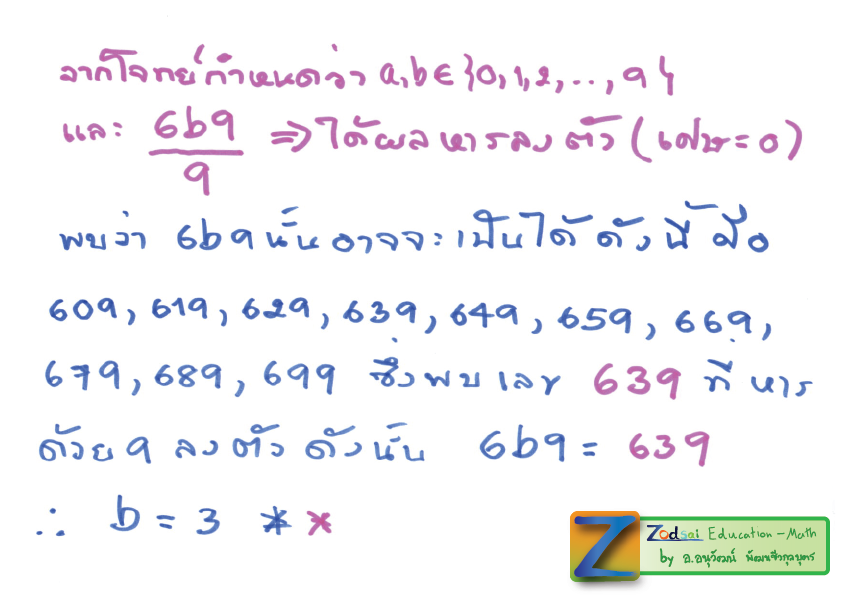 จากโจทย์กำหนดว่า a,b ∈ {0,1,2,...,9}
และ 6b9/9 ⇒ ได้ผลหารลงตัว (เศษ=0)
พบว่า 6b9 นั้นอาจจะเป็นได้ ดังนี้ คือ
609, 619, 629, 639, 649, 659, 669,
679, 689, 699 ซึ่งพบเลข 639 ที่หาร
ด้วย 9 ลงตัว ดังนั้น 6b9 = 639
∴ b = 3 **
Z Zodsai Education - Math
by อ.อนุวัฒน์